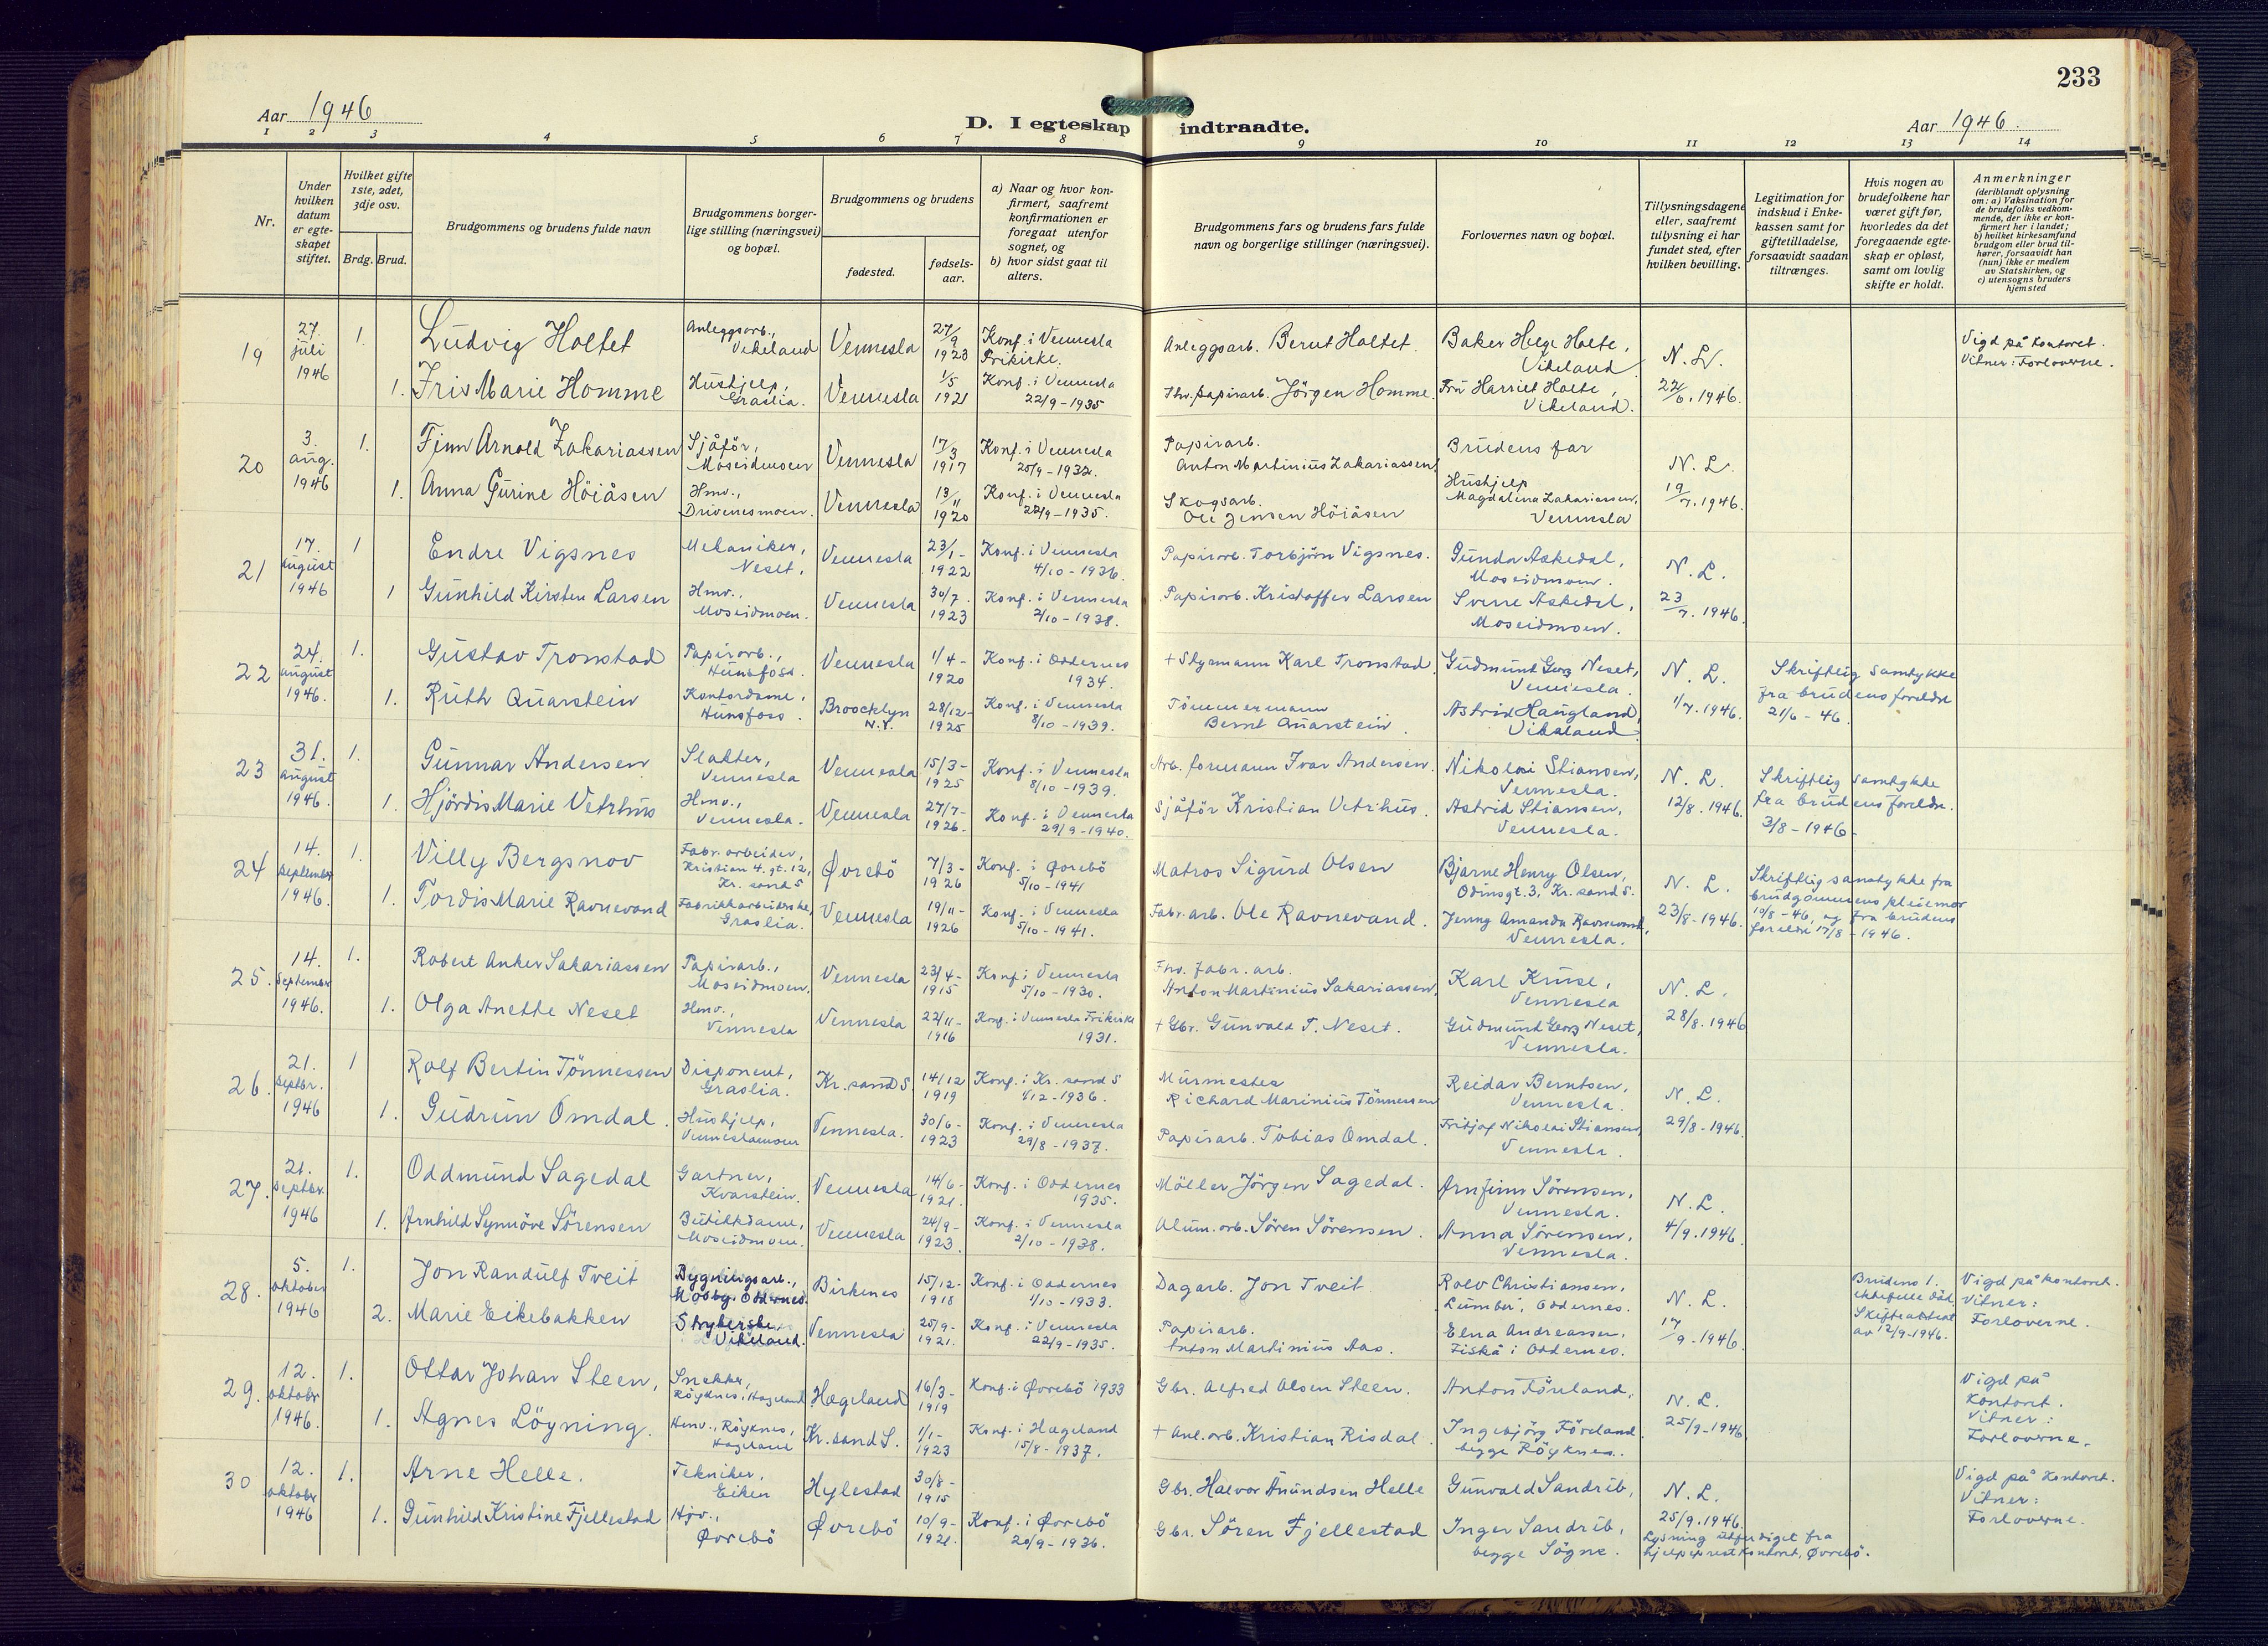 233
Aar 1946
D. I egteskap indtraadte.
Aar 1946.
1 2 3 4 5 6 7 8 9 10 11 12 13 14
Nr.
Under hvilken datum er egteskapet stiftet.
Hvilket gifte 1ste, 2det, 3dje osv.
Brdg. Brud.
Brudgommens og brudens fulde navn
Brudgommens borgerlige stilling (næringsvei) og bopæl.
Brudgommens og brudens
fødested.
fødselsaar.
a) Naar og hvor konfirmert, saafremt konfirmationen er foregaat utenfor sognet, og
b) hvor sidst gaat til alters.
Brudgommens fars og brudens fars fulde navn og borgerlige stillinger (næringsvei).
Forlovernes navn og bopæl.
Tillysningsdagene eller, saafremt tillysning ei har fundet sted, efter hvilken bevilling.
Legitimation for indskud i Enkekassen samt for giftetilladelse, forsaavidt saadan tiltrænges.
Hvis nogen av brudefolkene har været gift før, hvorledes da det foregaaende egteskap er opløst, samt om lovlig skifte er holdt.
Anmerkninger
(deriblandt oplysning om: a) Vaksination for de brudefolks vedkommende, der ikke er konfirmert her i landet; b) hvilket kirkesamfund brudgom eller brud tilhører, forsaavidt han (hun) ikke er medlem av Statskirken, og c) utensogns bruders hjemsted
19 27. juli 1946 1. Ludvig Holtet Anleggsarb., Vikeland Vennesla 27/9 1923 Konf. i Vennesla Frikirke. Anleggsarb. Bernt Holtet. Baker Helge Holte, Vikeland N. L. Vigd på kontoret. Vitner: Forloverne.
1. Iris Marie Homme Hushjelp, Graslia. Vennesla 1/5 1921 Konf. i Vennesla 22/9-1935 Fhv. papirarb. Jörgen Homme. Fru Harriet Holte, Vikeland. 22/6. 1946.
20 3. aug. 1946 1. Finn Arnold Zakariassen Sjåför, Moseidmoen Vennesla 17/3 1917 Konf. i Vennesla 25/9-1932. Papirarb. Anton Martinius Zakariassen, Brudens far N. L.
1. Anna Gurine Höiåsen Hmv., Drivenesmoen. Vennesla 13/11 1920 Konf. i Vennesla 22/9-1935. Skogsarb. Ole Jensen Höiåsen Hushjelp Magdalena Zakariassen, Vennesla 19/7. 1946.
21 17. august 1946 1 Endre Vigsnes Mekaniker, Neset, Vennesla 23/1- 1922 Konf. i Vennesla 4/10-1936. Papirarb. Torbjörn Vigsnes. Gunda Askedal, Moseidmoen. N. L.
1 Gunhild Kirsten Larsen Hmv., Moseidmoen. Vennesla 30/7. 1923 Konf. i Vennesla 2/10-1938. Papirarb. Kristoffer Larsen Sverre Askedal, Moseidmoen. 23/7. 1946.
22 24. august 1946. 1. Gustav Tronstad Papirarb., Hunsfoss. Vennesla 1/4- 1920 Konf. i Oddernes 1934. + Styrmann Karl Tronstad. Gudmund Georg Neset, Vennesla. N. L. Skriftlig samtykke fra brudens foreldre 21/6-46.
1. Ruth Quarstein Kontordame, Hunsfoss. Broocklyn N.Y. 28/12- 1925 Konf. i Vennesla 8/10-1939. Tömmermann Bernt Quarstein. Astrid Haugland, Vikeland. 1/7. 1946.
23 31. august 1946. 1. Gunnar Andersen Slakter, Vennesla Vennesla 15/3- 1925 Konf. i Vennesla 8/10-1939. Arb. formann Ivar Andersen. Nikolai Stiansen, Vennesla. N. L. Skriftlig samtykke fra brudens foreldre. 3/8-1946.
1. Hjördis Marie Vetrhus Hmv., Vennesla. Vennesla 27/7- 1926. Konf. i Vennesla 29/9-1940. Sjåför Kristian Vetrhus. Astrid Stiansen, Vennesla. 12/8. 1946.
24 14. september 1946. 1. Villy Bergsnov Fabr. arbeider, Kristian 4. gt. 12, Kr. sand S Øvrebö 7/3- 1926 Konf. i Øvrebö 5/10-1941 Matros Sigurd Olsen Bjarne Henry Olsen, Odinsgt. 3, Kr. sand S. N. L. Skriftlig samtykke fra brudgommens pleiemor 10/8-46, og fra brudens foreldre 17/8-1946.
1. Tordis Marie Ravnevand Fabrikkarbeiderske, Graslia. Vennesla 19/11- 1926 Konf. i Vennesla 5/10-1941. Fabr. arb. Ole Ravnevand. Jenny Amanda Ravnevand, Vennesla. 23/8-1946.
25. 14. September 1946. 1. Robert Anker Sakariassen Papirarb., Moseidmoen. Vennesla 23/4- 1915 Konf. i Vennesla 5/10-1930. Fhv. fabr. arb. Anton Martinius Sakariassen, Karl Kruse, Vennesla N. L.
1. Olga Anette Neset Hmv., Vennesla Vennesla 22/11- 1916 Konf. i Vennesla Frikirke 1931. + Gbr. Gunvald T. Neset. Gudmund Georg Neset, Vennesla. 28/8. 1946
26. 21. septbr. 1946 1 Rolf Bertin Tönnessen Disponent, Graslia. Kr. sand S 14/12 1919 Konf. i Kr. sand S 1/12-1936. Murmester Richard Marinius Tönnessen Reidar Berntsen, Vennesla. N. L.
1. Gudrun Omdal. Hushjelp, Venneslamoen Vennesla. 30/6- 1923 Konf. i Vennesla 29/8-1937. Papirarb. Tobias Omdal. Fritjof Nikolai Stiansen, Vennesla. 29/8-1946.
27. 21. septbr. 1946 1. Oddmund Sagedal Gartner, Kvarstein. Vennesla 14/6- 1921. Konf. i Oddernes 1935. Möller Jörgen Sagedal. Arnfinn Sörensen, Vennesla. N. L.
1. Arnhild Synnöve Sörensen Butikkdame, Moseidmoen. Vennesla 24/9- 1923. Konf. i Vennesla 2/10-1938. Alum. arb. Sören Sörensen. Anna Sörensen, Vennesla. 4/9. 1946.
28. 5. oktober 1946 1. Jon Randulf Tveit Bygningsarb., Mosby, Oddernes. Birkenes 15/12- 1918 Konf. i Oddernes 1/10-1933. Dagarb. Jon Tveit Rolv Christiansen, Lumber, Oddernes. N. L. Brudens 1. ektefelle död. Skifteattest av 12/9-1946. Vigd på kontoret. Vitner: Forloverne.
2. Marie Eikebakken Strykerske, Vikeland. Vennesla 25/9- 1921. Konf. i Vennesla 22/9-1935. Papirarb. Anton Martinius Aas. Elna Andreassen, Fiskå i Oddernes. 17/9-1946.
29. 12. oktobr 1946. 1. Ottar Johan Steen, Snekker, Röyknes, Hægeland Hægeland 16/3- 1919 Konf. i Øvrebö 1933 Gbr. Alfred Olsen Steen. Anton Föreland, N. L. Vigd på kontoret. Vitner: Forloverne.
1. Agnes Löyning. Hmv., Röyknes, Hægeland Kr. sand S. 1/1- 1923 Konf. i Hægeland 15/8-1937. + Anl. arb. Kristian Risdal. Ingebjörg Föreland. begge Röyknes. 25/9-1946
30 12. oktobr 1946 1. Arne Helle. Tekniker, Eiken Hylestad 30/8- 1915 Gbr. Halvor Åmundsen Helle Gunvald Sandrib, N. L. Vigd på kontoret. Vitner: Forloverne.
1. Gunhild Kristine Fjellestad Hjv., Øvrebö Øvrebö 10/9- 1921. Konf. i Øvrebö 20/9-1936. Gbr. Sören Fjellestad Inger Sandrib, begge Sögne. 25/9. 1946. Lysning utferdiget fra hjelpeprestkontoret, Øvrebö.